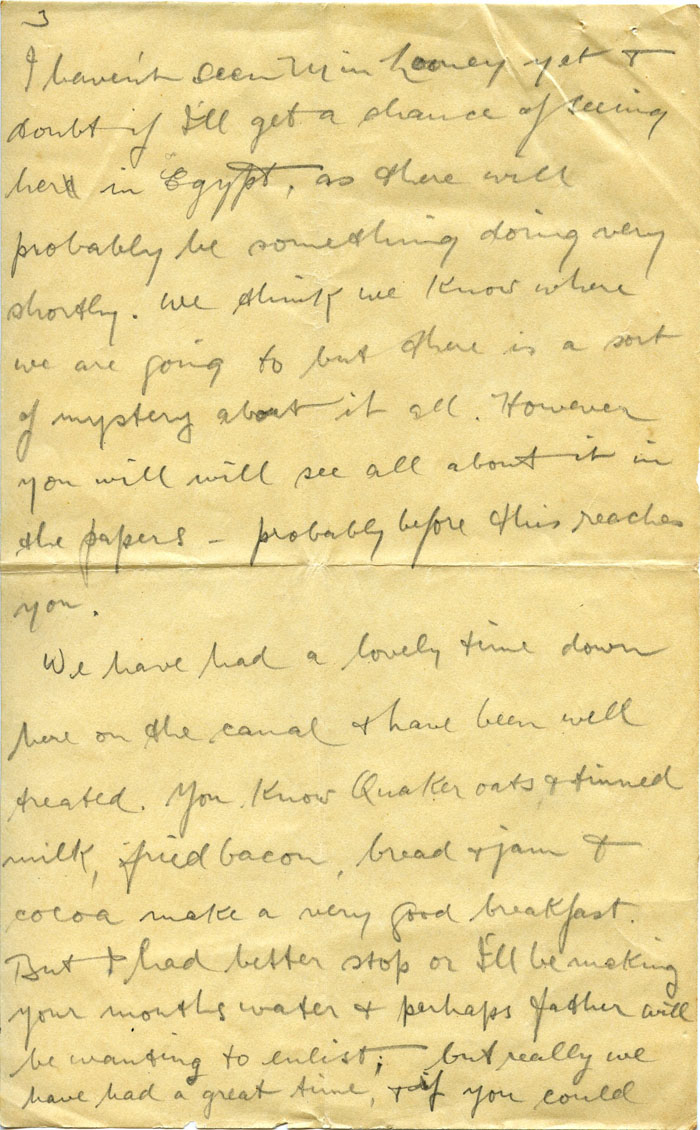 3
I haven't seen Min Looney yet &
doubt if I'll get a chance of seeing
her in Egypt, as there will
probably be something doing very
shortly. We think we know where
we are going to but there is a sort
of mystery about it all. However
you will will see all about it in
the papers – probably before this reaches
you.
We have had a lovely time down
here on the canal & have been well
treated. You know Quaker oats & tinned
milk, fried bacon, bread & jam &
cocoa make a very good breakfast.
But I had better stop or I'll be making
your mouths water & perhaps father will
be wanting to enlist; but really we
have had a great time, & if you could